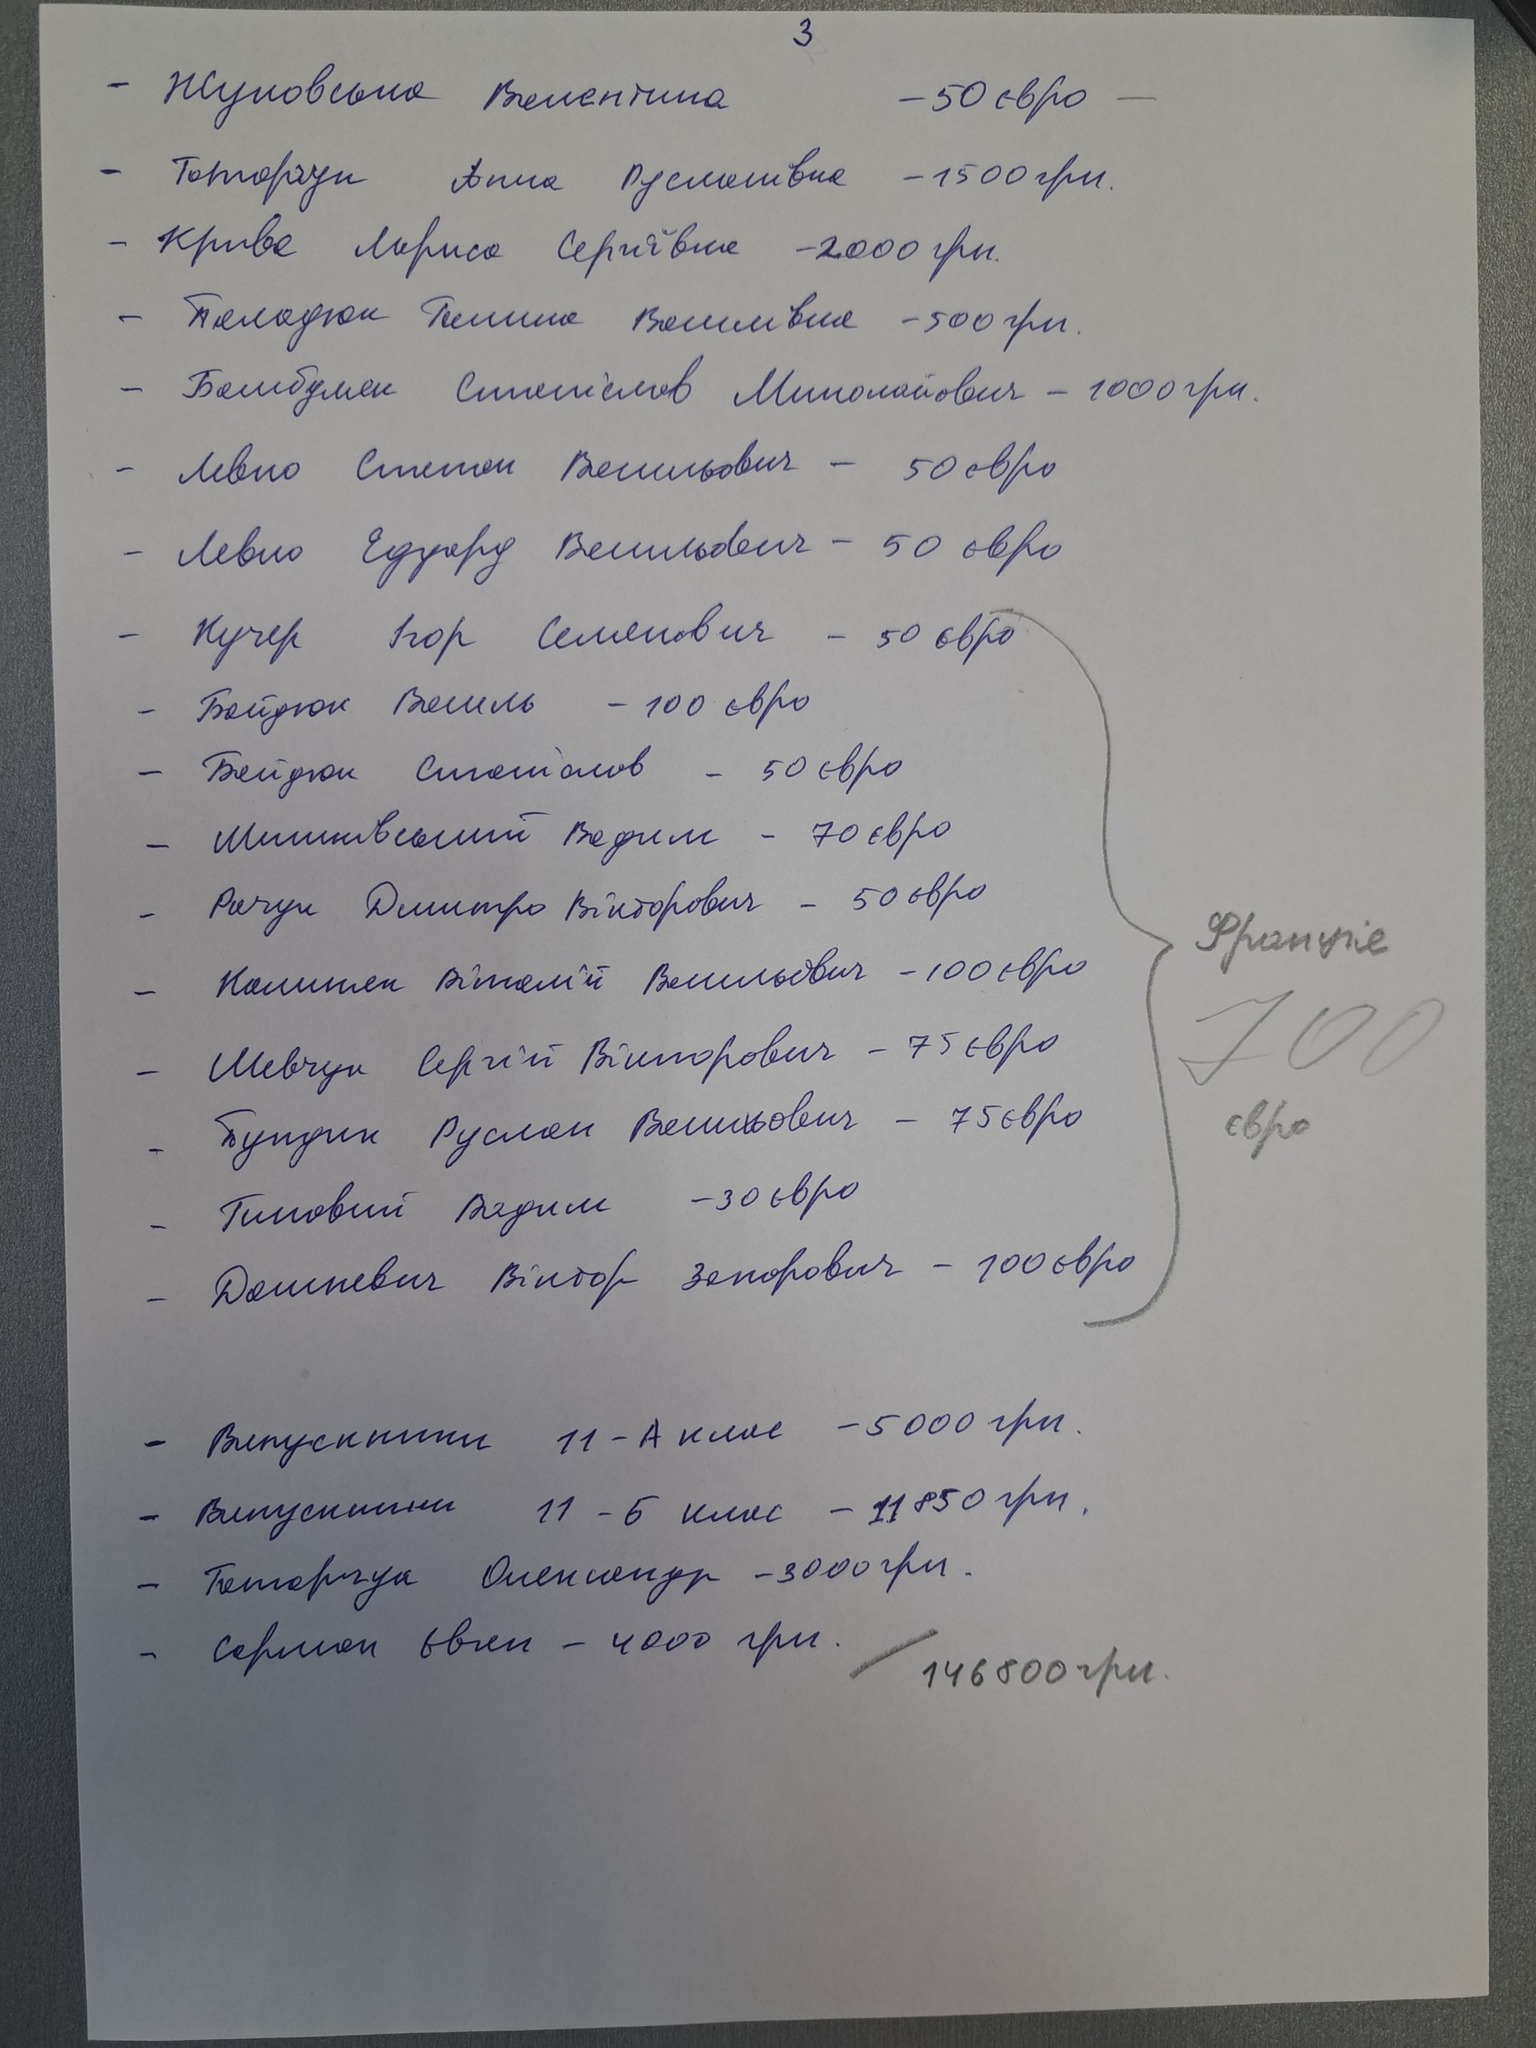 3
- Жуковська Валентина - 50 євро -
- Татарчук Анна Русланівна - 1500 грн.
- Крива Лариса Сергіївна - 2000 грн.
- Паладюк Галина Василівна - 500 грн.
- Бамбуляк Станіслав Миколайович - 1000 грн.
- Левко Степан Васильович - 50 євро
- Левко Едуард Васильович - 50 євро
- Кучер Ігор Семенович - 50 євро
- Байдюк Василь - 100 євро
- Байдюк Станіслав - 50 євро
- Вадим - 70 євро
- Рачук Дмитро Вікторович - 50 євро
Франція
- Віталій Васильович - 100 євро
700
- Шевчук Сергій Вікторович - 75 євро
євро
- Руслан Васильович - 75 євро
- Вадим - 30 євро
- Дашкевич Віктор - 100 євро
- Випускники 11-А клас - 5000 грн.
- Випускники 11-Б клас - 11850 грн.
- Татарчук Олександр - 3000 грн.
- Сармак Євген - 4000 грн.
146800 грн.